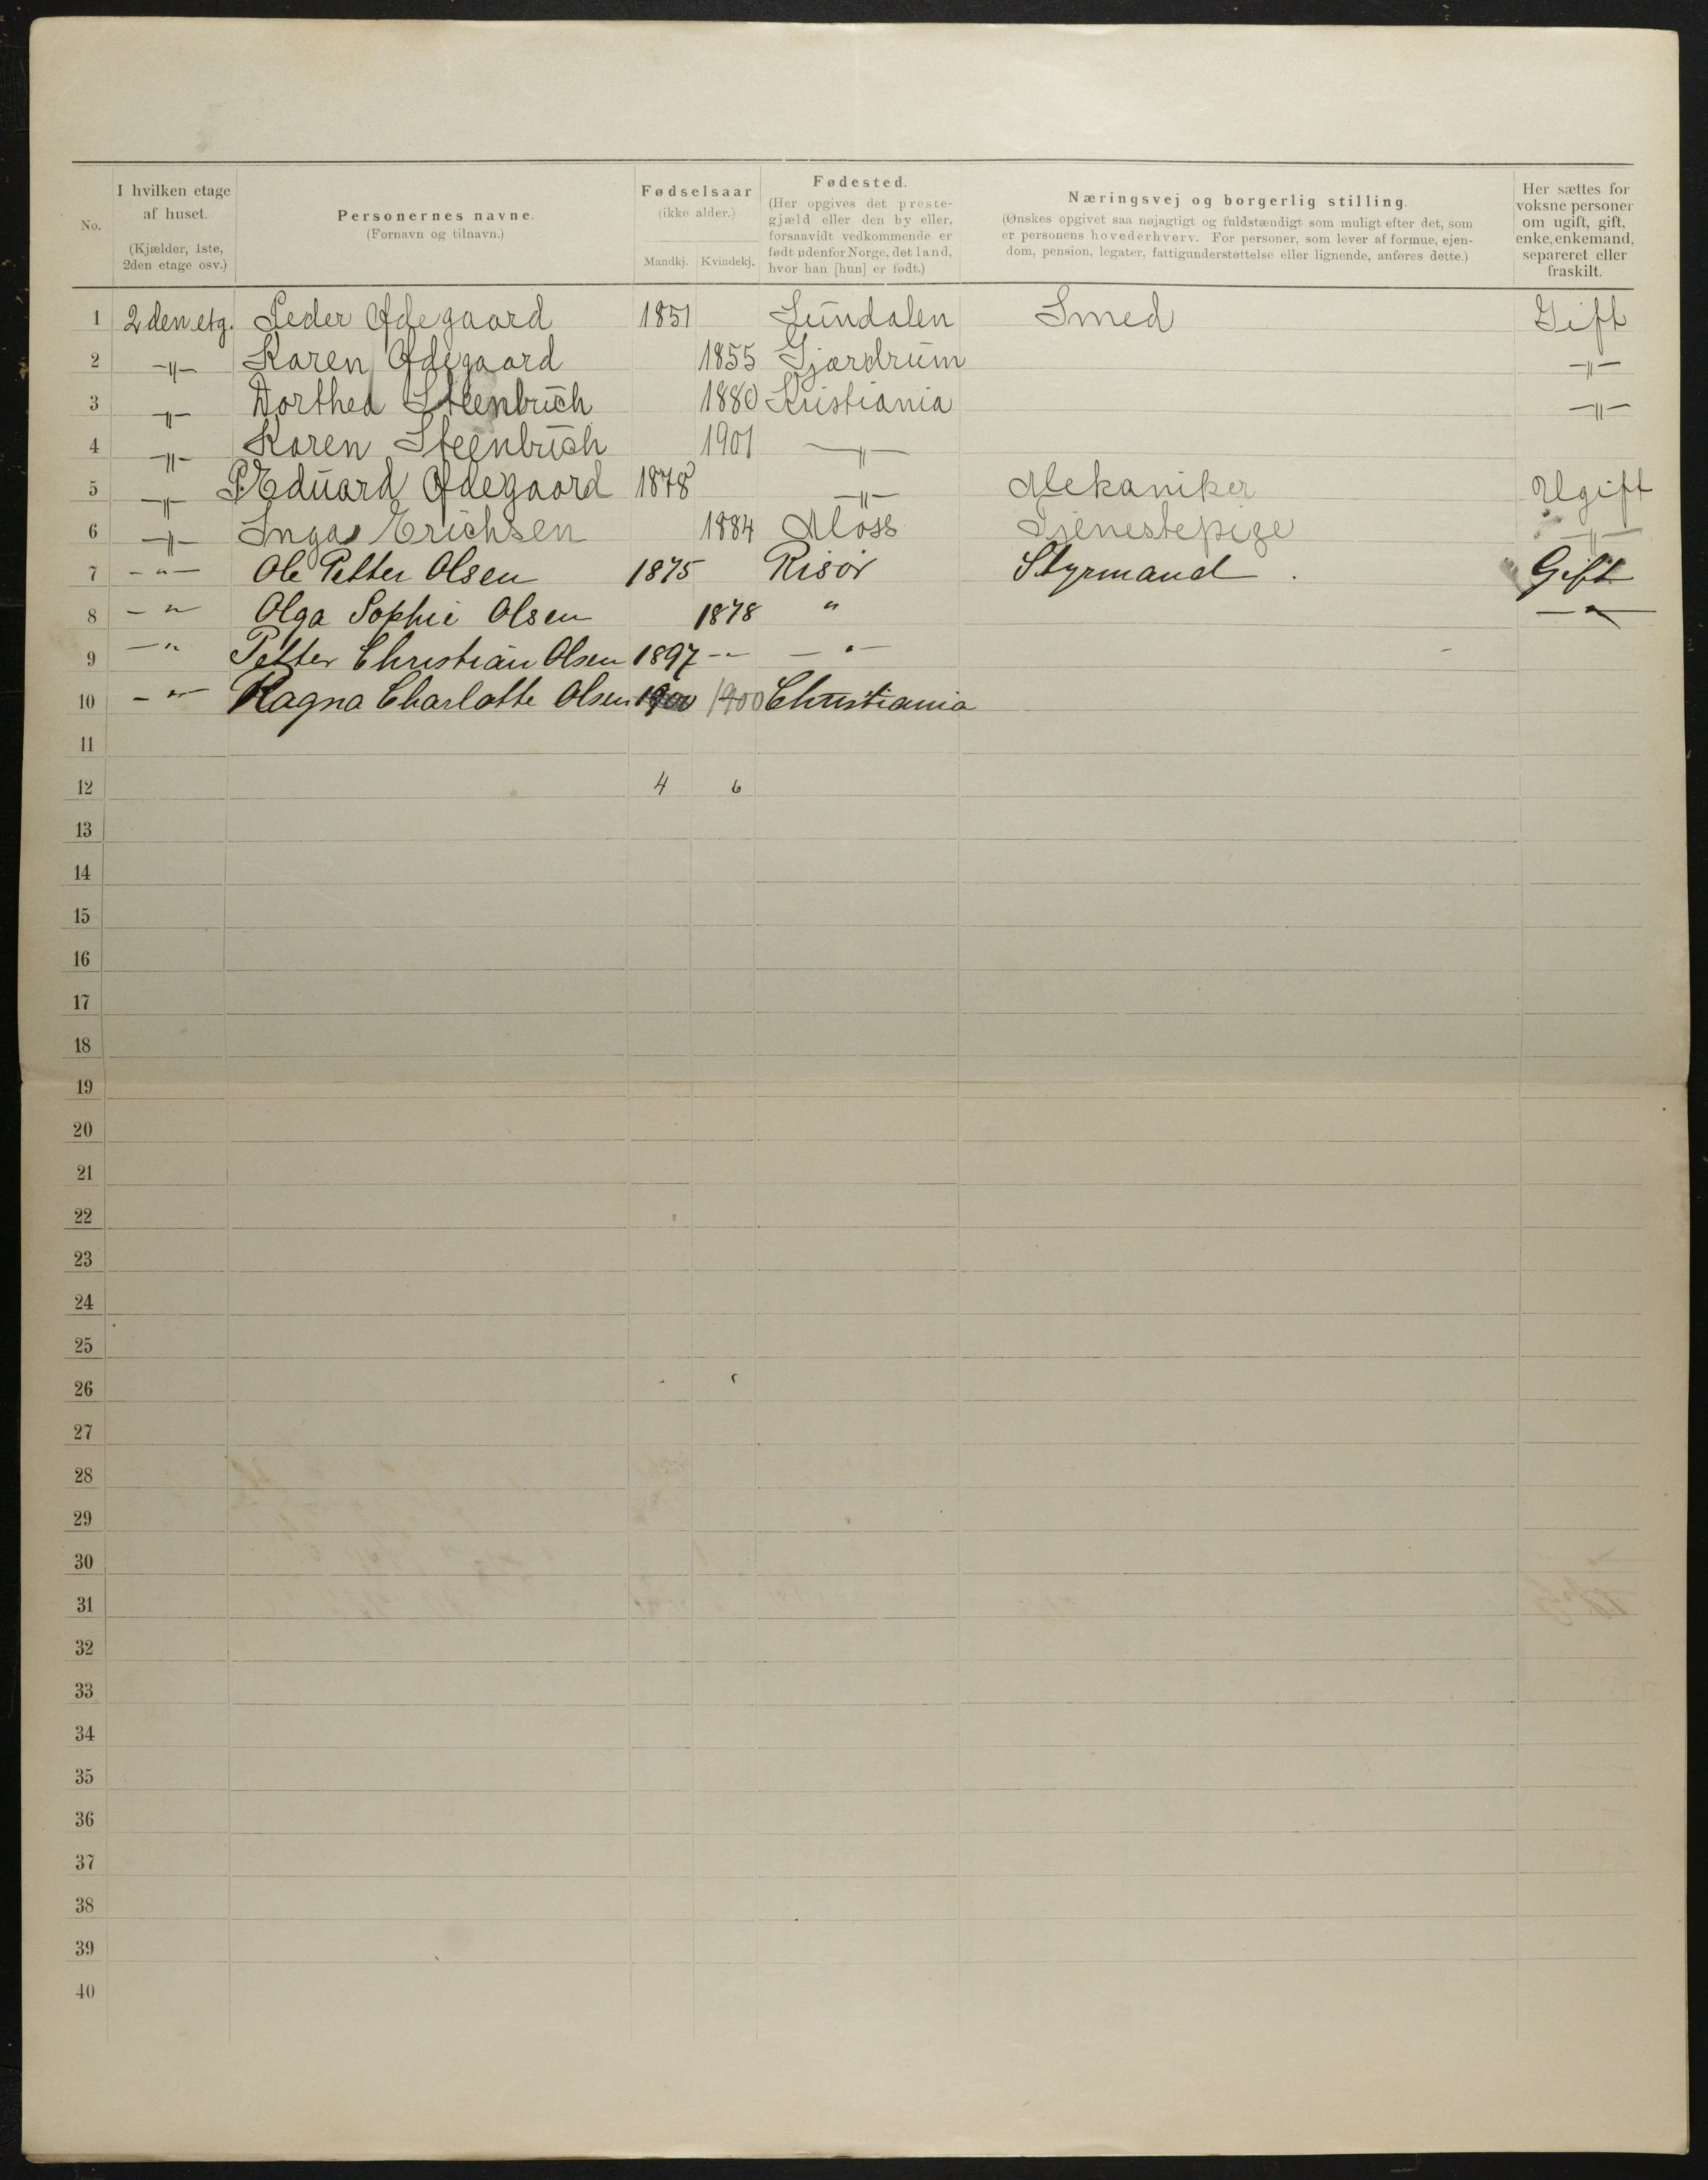 No. | I hvilken etage af huset. (Kjælder, 1ste, 2den etage osv.) | Personernes navne. (Fornavn og tilnavn.) | Fødselsaar (ikke alder.) Mandkj. | Kvindekj. | Fødested. (Her opgives det prestegjæld eller den by eller, forsaavidt vedkommende er født udenfor Norge, det land, hvor han [hun] er født.) | Næringsvej og borgerlig stilling. (Ønskes opgivet saa nøjagtigt og fuldstændigt som muligt efter det, som er personens hovederhverv. For personer, som lever af formue, ejendom, pension, legater, fattigunderstøttelse eller lignende, anføres dette.) | Her sættes for voksne personer om ugift, gift, enke, enkemand, separeret eller fraskilt.
1 2 den etg. Peder Ødegaard 1851 Smed Gift
2 -"- Karen Ødegaard 1855 Gjærdrum -"-
3 -"- Dorthea Steenbüch 1880 Kristiania -"-
4 -"- Karen Steenbüch 1901 -"-
5 -"- P. Eduard Ødegaard 1878 -"- Mekaniker Ugift
6 -"- Inga Erichsen 1884 Moss Tjenestepige -"-
7 -"- Ole Petter Olsen 1875 Risør Styrmand. Gift
8 -"- Olga Sophie Olsen 1878 " -"-
9 -"- Petter Christian Olsen 1897 -"- -"-
10 -"- Ragna Charlotte Olsen 1900 1900 Christiania
11
12 4 6
13
14
15
16
17
18
19
20
21
22
23
24
25
26
27
28
29
30
31
32
33
34
35
36
37
38
39
40